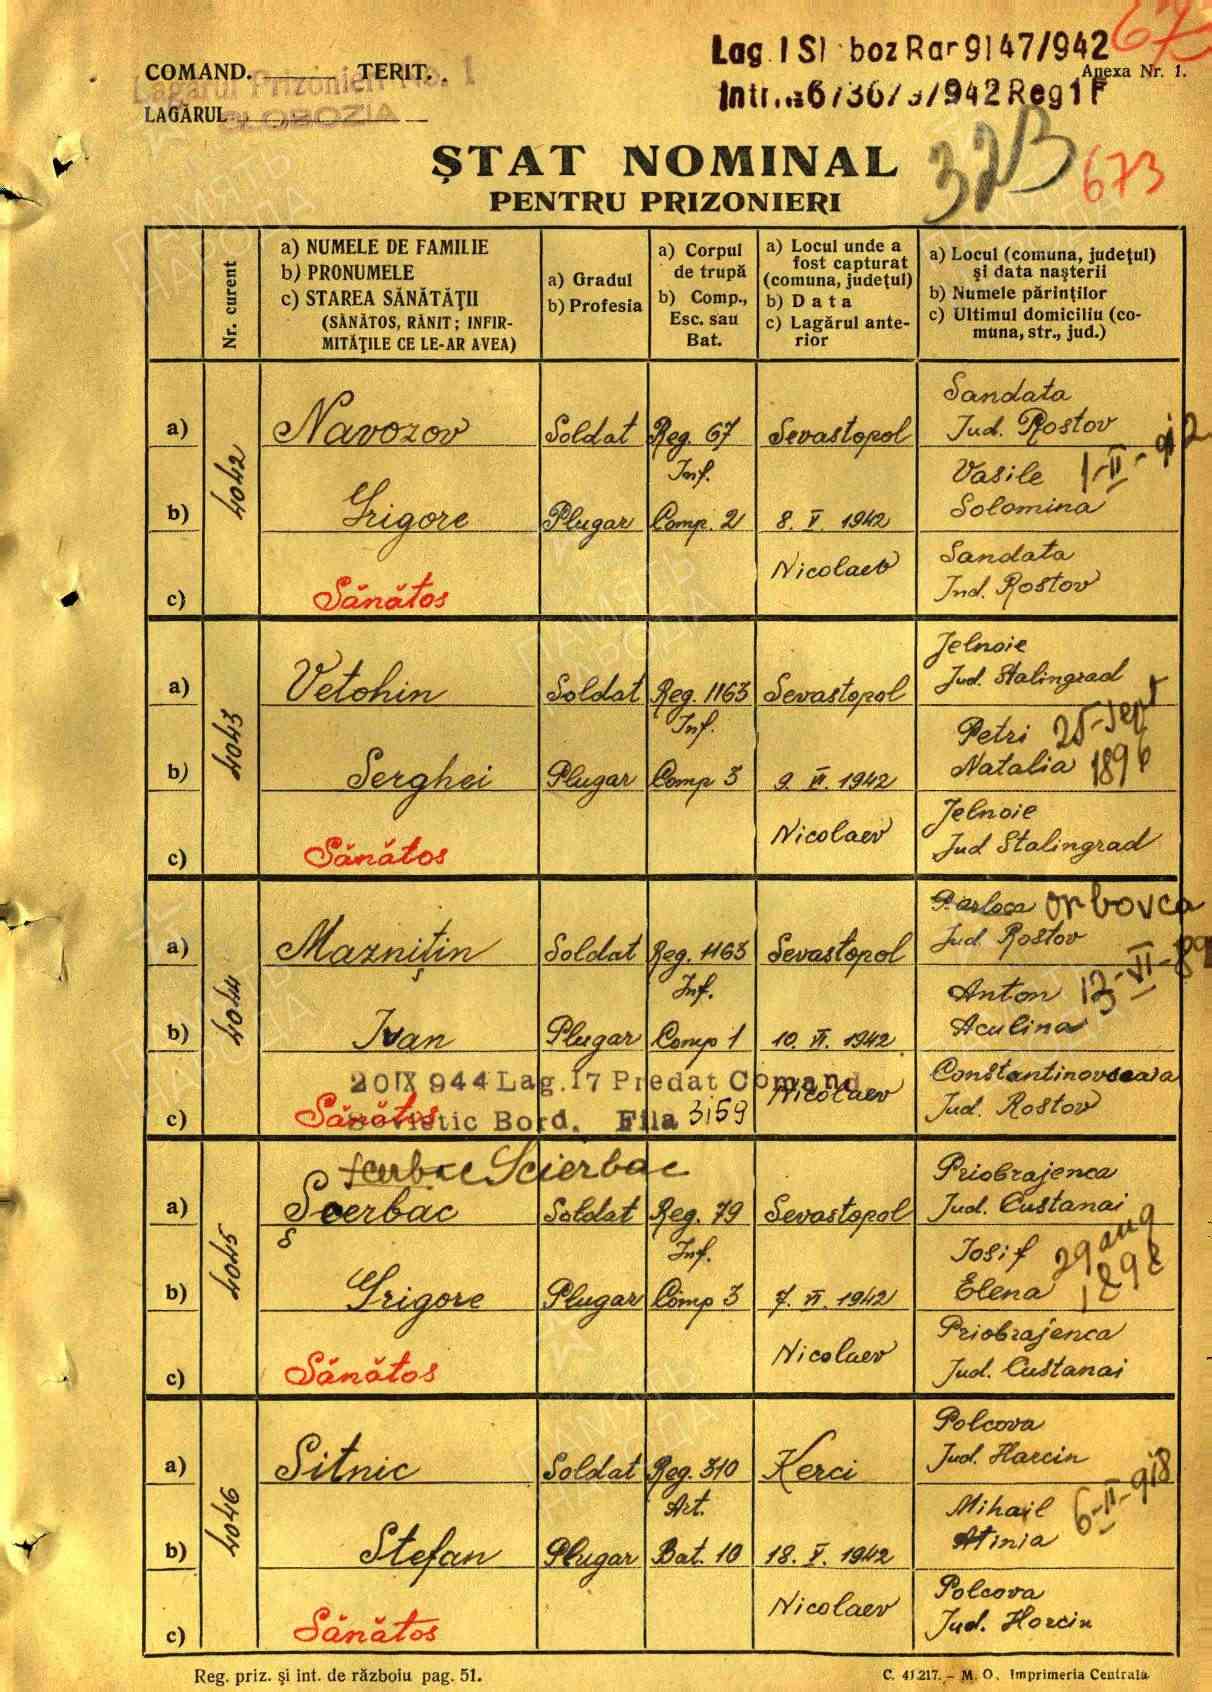 673
Lag. 1 Sl boz Rar 9147/942
COMAND. TERIT.
Anexa Nr. 1.
Lagărul Prizonieri No. 1
LAGĂRUL
SLOBOZIA
ȘTAT NOMINAL
PENTRU PRIZONIERI
673
Nr. curent
a) NUMELE DE FAMILIE
b) PRONUMELE
c) STAREA SĂNĂTĂŢII
(SĂNĂTOS, RĂNIT; INFIR-
MITĂŢILE CE LE-AR AVEA)
a) Gradul
b) Profesia
a) Corpul
de trupă
b) Comp.,
Esc. sau
Bat.
a) Locul unde a
fost capturat
(comuna, judeţul)
b) Data
c) Lagărul ante-
rior
a) Locul (comuna, judeţul)
și data nașterii
b) Numele părinţilor
c) Ultimul domiciliu (co-
muna, str., jud.)
4042
a) Navozov
Soldat
Reg. 67
Inf.
Sevastopol
Sandata
Jud. Rostov
b) Grigore
Plugar
Comp. 2
8. V. 1942
Vasile 1-II-912
Solomina
c) Sănătos
Nicolaev
Sandata
Jud. Rostov
4043
a) Vetohin
Soldat
Reg. 1163
Inf.
Sevastopol
Jelnoie
Jud. Stalingrad
b) Serghei
Plugar
Comp 3
9. VI. 1942
Petri 25-sept
Natalia 1896
c) Sănătos
Nicolaev
Jelnoie
Jud Stalingrad
4044
a) Maznițin
Soldat
Reg. 1163
Inf.
Sevastopol
orbovca
Jud. Rostov
b) Ivan
Plugar
Comp 1
10. VI. 1942
Anton 13-VI-89
Aculina
20 IX 944 Lag. 17 Predat Comand
c) Sănătos
Sovietic Bord. Fila 3159
Nicolaev
Constantinovscaia
Jud. Rostov
4045
Scierbac
a) Scerbac
Soldat
Reg. 79
Inf.
Sevastopol
Priobrajenca
Jud. Custanai
b) Grigore
Plugar
Comp 3
7. VI. 1942
Iosif 29 aug
Elena 1898
c) Sănătos
Nicolaev
Priobrajenca
Jud. Custanai
4046
a) Sitnic
Soldat
Reg. 310
Art.
Kerci
Polcova
Jud. Harcin
b) Stefan
Plugar
Bat. 10
18. V. 1942
Mihail 6-II-918
c) Sănătos
Nicolaev
Polcova
Jud. Horcin
Reg. priz. și int. de războiu pag. 51.
C. 41.217. - M. O. Imprimeria Centrala
ПАМЯТЬ
НАРОДА